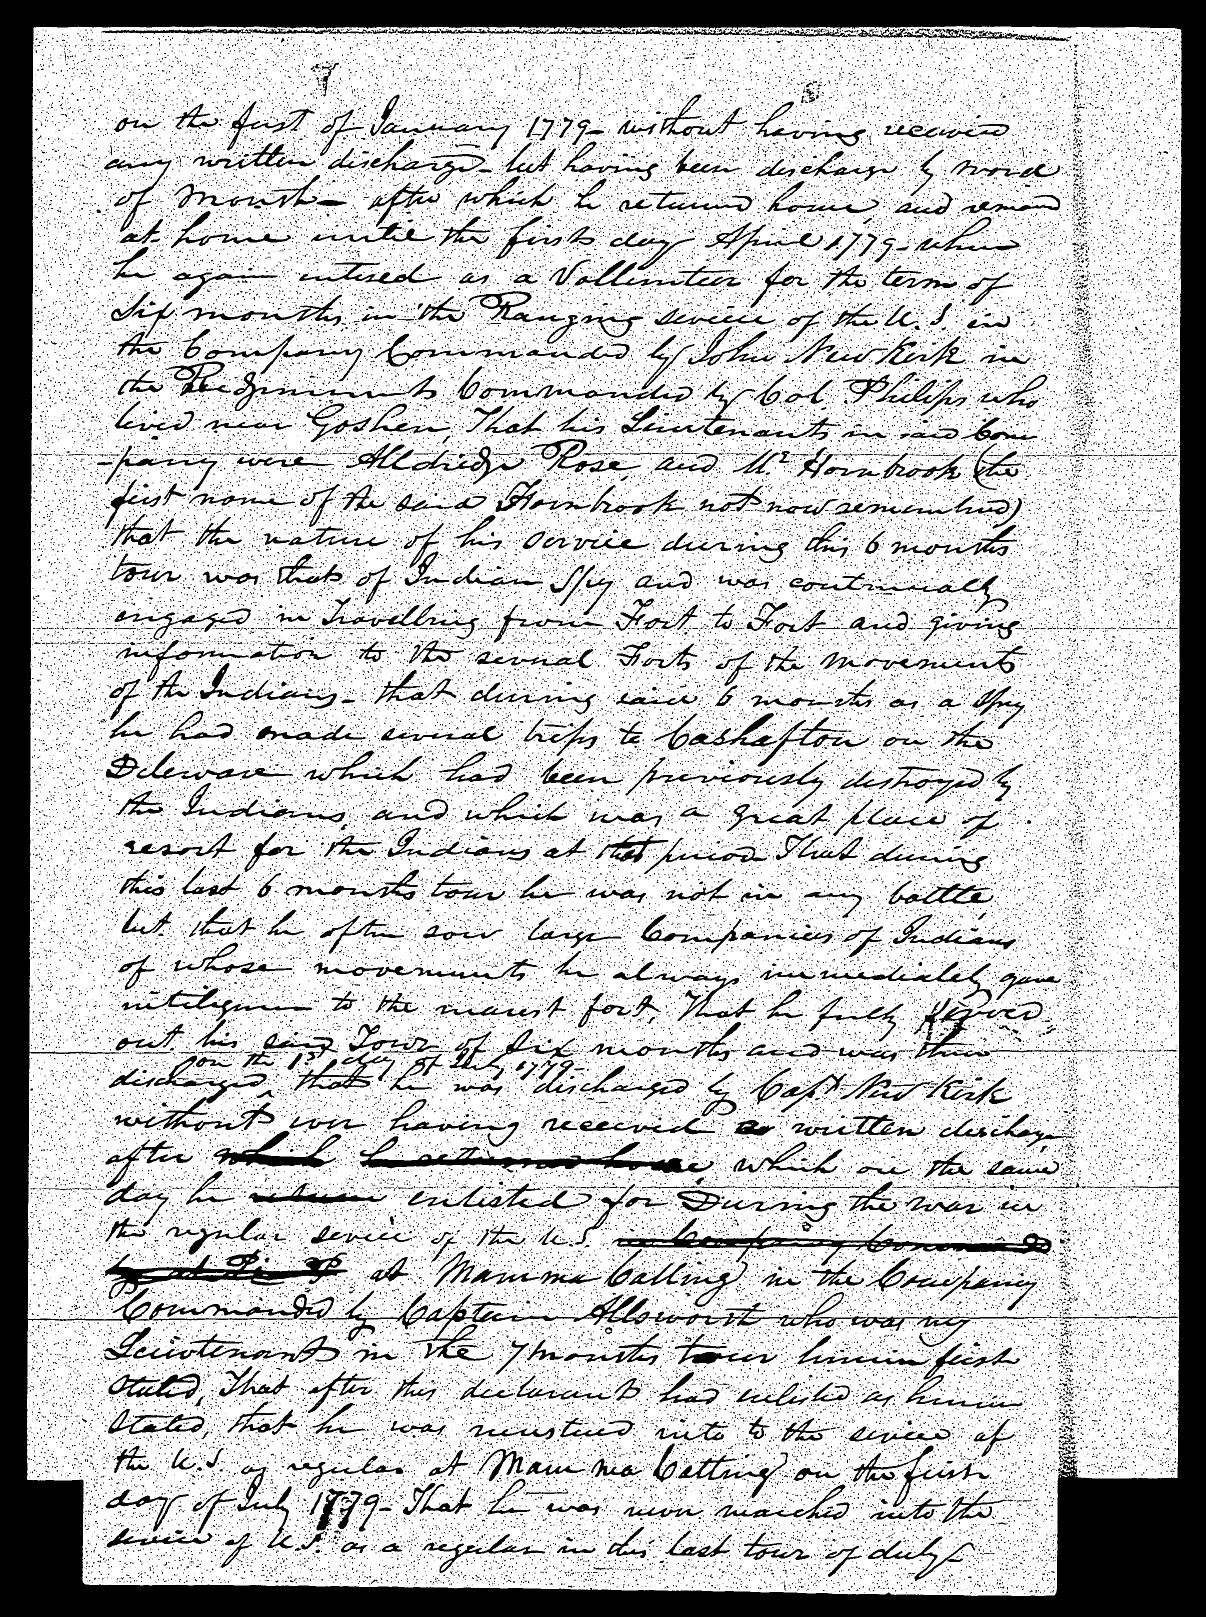 on the first of January 1779 - without having received
any written discharge - but having been discharge by word
of Mouth - after which he returned home, and remaind
at home untill the first day April 1779 - when
he again entered as a Vollenteer for the term of
Six months in the Ranging service of the U.S. in
the Company Commanded by John NewKirk in
the Redgiments Commanded by Col Philips who
lived near Goshen, That his Lieutenants in said Com
-pany were Alldridge Rose, and Mr Hornbrook (the
first name of the said Hornbrook not now remembered)
that the nature of his service during this 6 months
tour was that of Indian Spy and was continually
engaged in Travelling from Fort to Fort and giving
information to the several Forts of the movements
of the Indians - that during said 6 months as a spy
he had made several trips to Cashafton on the
Deleware which had been previously destroyed by
the Indians, and which was a great place of
resort for the Indians at that period That during
this last 6 months tour he was not in any battle,
but that he often saw large Companies of Indians
of whose movements he always immediately gave
intiligence to the nearest fort, That he fully served
out his said Tour of Six months and was then
on the 1st day of July 1779 -
discharged, that he was discharged by Capt New Kirk
without ever having received a written discharge
after which he returned home, which on the same
day he return enlisted for During the war in
the regular service of the U.S. in Company Commanded
by at at Mamma Catting in the Company
Commanded by Captain Allsworth who was my
Lieutenant in the 7 months tour herein first
stated, That after this declarant had enlisted as herein
stated, that he was mustered into to the service of
the U.S. as regular at Mamma Catting on the first
day of July 1779 - That he was marched into the
service of U.S. as a regular in this last tour of duty